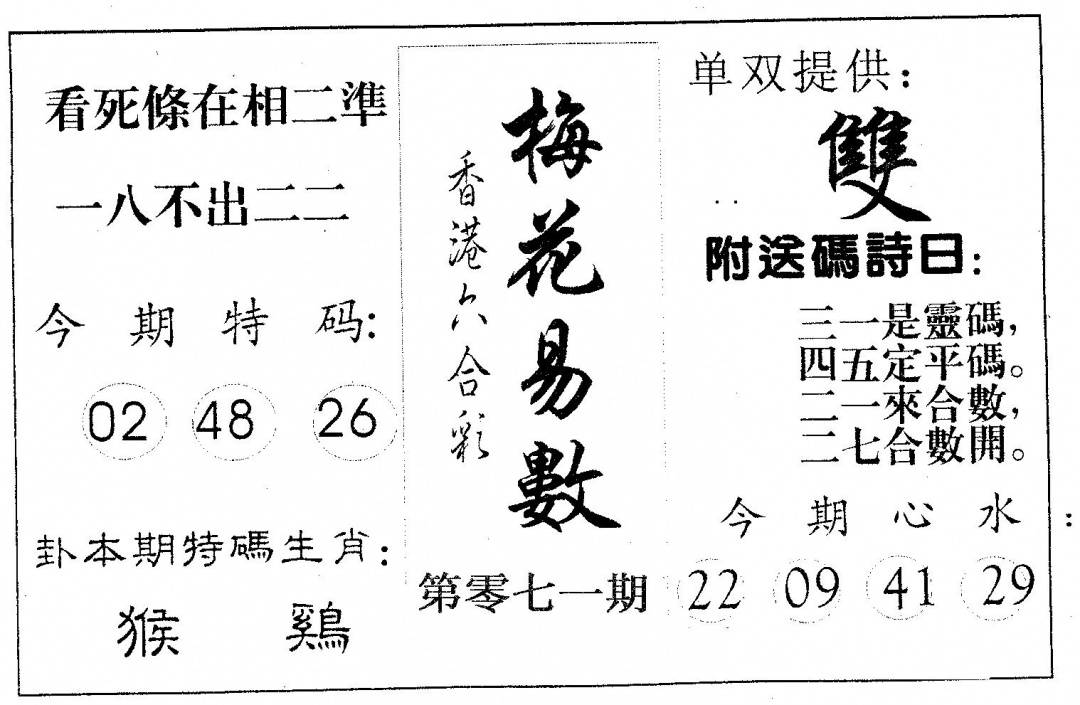 看死條在相二準
一八不出二二
今期特码:
02 48 26
卦本期特碼生肖:
猴 鷄
梅花易數
香港六合彩
第零七一期
单双提供:
雙
附送碼詩曰:
三一是靈碼,
四五定平碼。
二一來合數,
二七合數開。
今期心水:
22 09 41 29